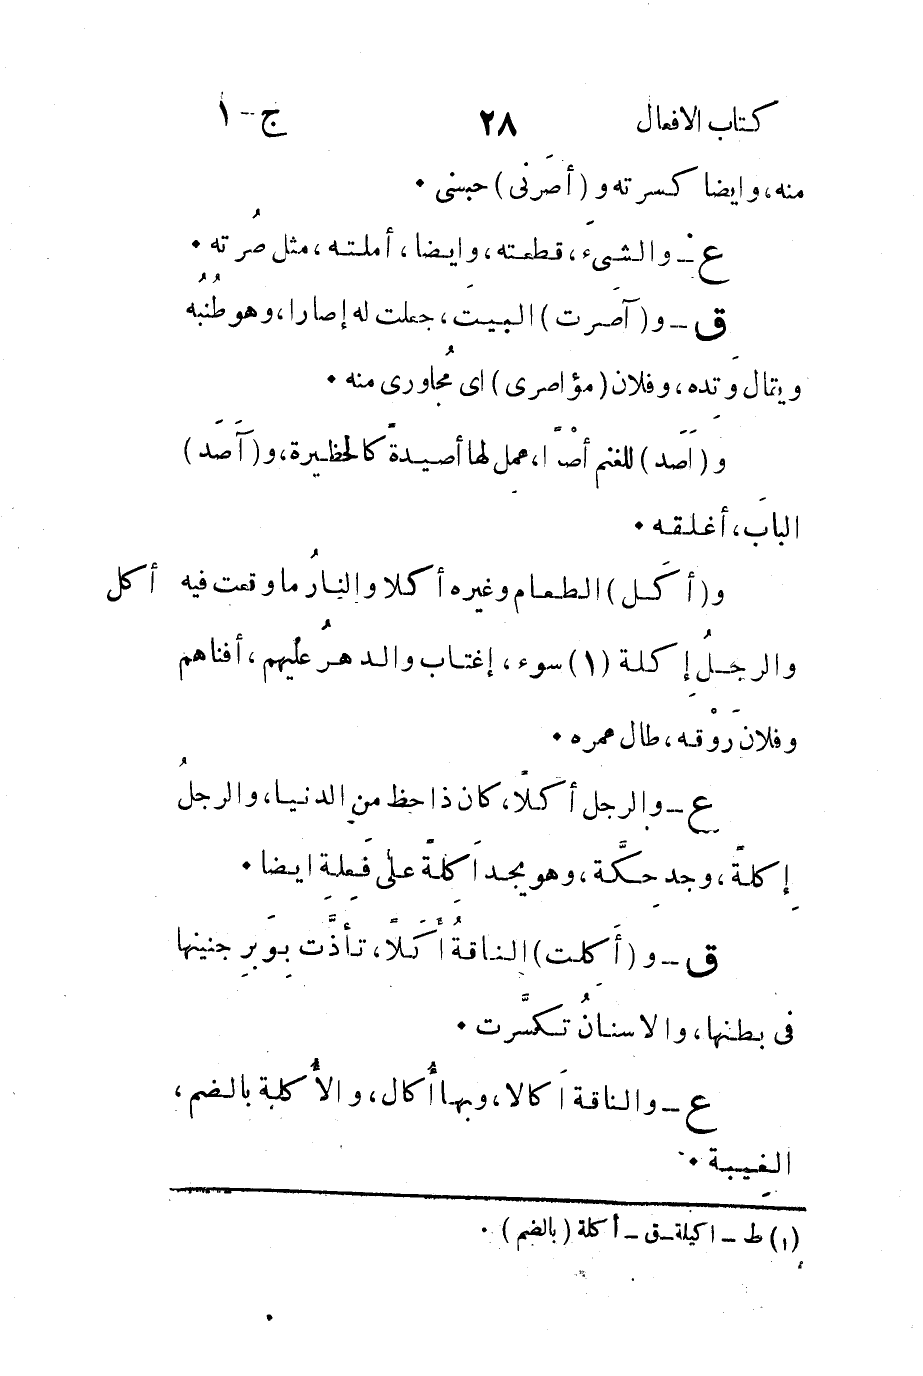 كتاب الافعال ٢٨ ج-١
منه، وايضا كسرته و (أصَرنى) حبسنى ٠
ع - والشىءَ، قطعته، وايضا، أملته، مثل صُرته ٠
ق - و (آصرت) البيت، جعلت له إصارا، وهو طُنُبه
ويقال وَتِده، وفلان (مؤاصرى) اى مُجاورى منه ٠
و (اَصَد) للغنم أصْدًا، عمل لها أصِيدةً كالحظيرة، و (آصَدَ)
البابَ، أغلقه ٠
و (أكَل) الطعام وغيره أكلا والنارُ ما وقعت فيه أكل
والرجلُ إِكلة (١) سوء، إغتاب والدهرُ عليُهم، أفناهم
وفلان رَوْقه، طال عمره ٠
ع - والرجل أكلًا، كان ذا حظ من الدنيا، والرجلُ
إِكلةً، وجد حِكَّة، وهو يجد اَكِلةً على فَعِلة ايضا ٠
ق - و (أَكِلت) الناقةُ أَكَلًا، تأذَّت بِوَبرِ جنينها
فى بطنها، والاسنانُ تكسَّرت ٠
ع - والناقة اَكالا، وبها أُكال، والأُكلة بالضم،
الغِيبة ٠
(١) ط - اكيلة - ق - أكلة (بالضم) ٠